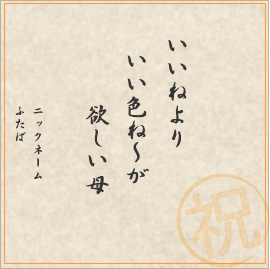 いいねより
いい色ね～が
欲しい母
ニックネーム
ふたば
祝